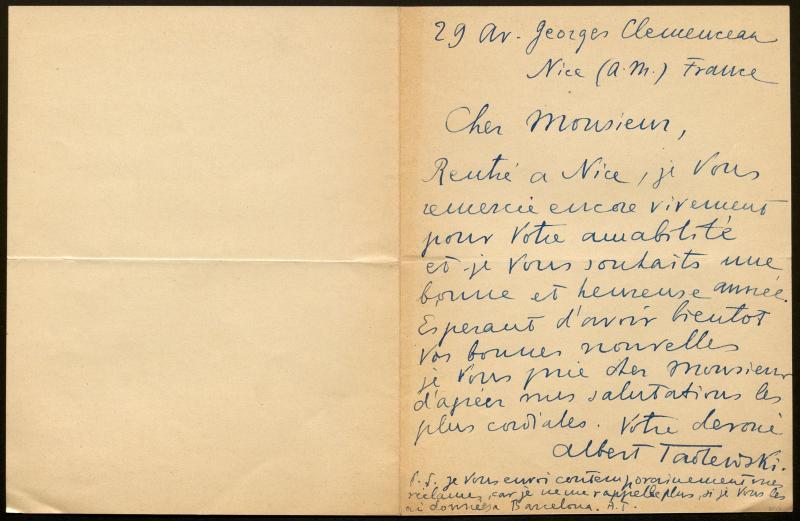 29 Av. Georges Clemenceau
Nice (A.M.) France
Cher Monsieur,
Rentré a Nice, je Vous
remercie encore vivement
pour Votre amabilité
et je Vous souhaits une
bonne et heureuse année.
Esperant d'avoir bientot
Vos bonnes nouvelles
je Vous prie cher monsieur
d'agréer mes salutations les
plus cordiales. Votre devoué
Albert Tadlewski.
P.S. je Vous envoi contemporainement mes
réclames, car je ne me rappelle plus, si je Vous les
ai données a Barcelona. A.T.